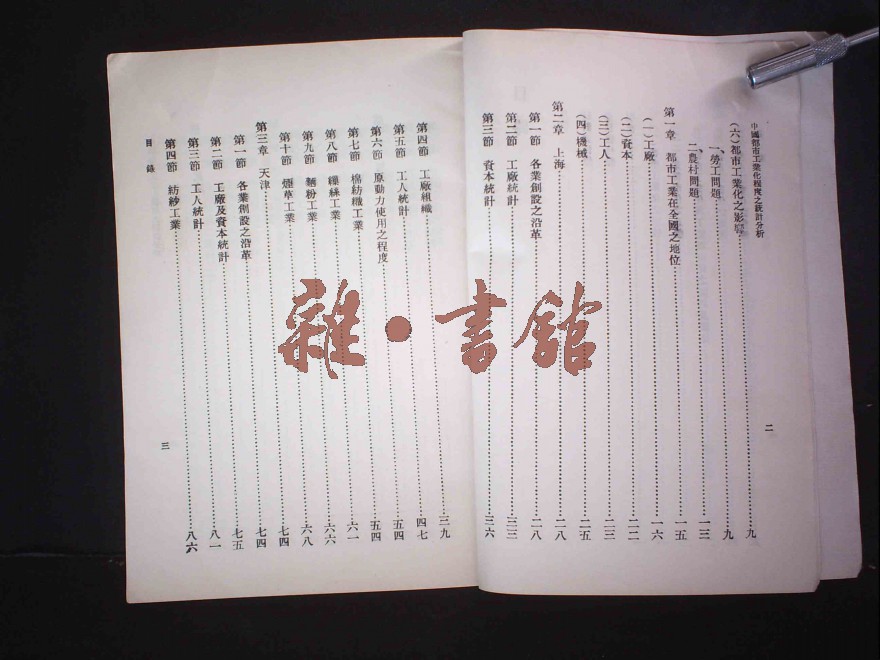 中國都市工業化程度之統計分析
(六)都市工業化之影響……九
一、勞工問題……九
二、農村問題……一三
第一章 都市工業在全國之地位……一五
(一)工廠……一六
(二)資本……二二
(三)工人……二三
(四)機械……二五
第二章 上海……二八
第一節 各業創設之沿革……二八
第二節 工廠統計……三三
第三節 資本統計……三六
二
第四節 工廠組織……三九
第五節 工人統計……四七
第六節 原動力使用之程度……五四
第七節 棉紡織工業……五四
第八節 繅絲工業……六一
第九節 麵粉工業……六六
第十節 煙草工業……六八
第三章 天津……七四
第一節 各業創設之沿革……七四
第二節 工廠及資本統計……七五
第三節 工人統計……八一
第四節 紡紗工業……八六
目錄
三
雜•書館